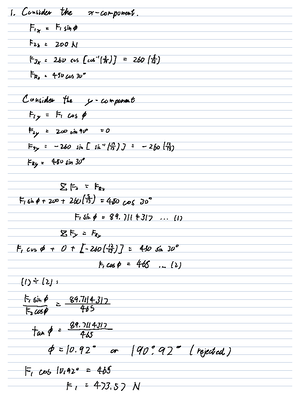 1. Consider the x-component.
F₁ₓ = F₁ sin ϕ
F₂ₓ = 200 N
F₃ₓ = 260 cos [cos⁻¹(5/13)] = 260 (5/13)
F_Rₓ = 450 cos 30°
Consider the y-component
F₁y = F₁ cos ϕ
F₂y = 200 sin 90° = 0
F₃y = -260 sin [sin⁻¹(12/13)] = -260 (12/13)
F_Ry = 450 sin 30°
ΣFₓ = F_Rₓ
F₁ sin ϕ + 200 + 260(5/13) = 450 cos 30°
F₁ sin ϕ = 89.7114317 ... (1)
ΣFy = F_Ry
F₁ cos ϕ + 0 + [-260(12/13)] = 450 sin 30°
F₁ cos ϕ = 465 ... (2)
(1) ÷ (2) :
F₁ sin ϕ / F₁ cos ϕ = 89.7114317 / 465
tan ϕ = 89.7114317 / 465
ϕ = 10.92° or 190.92° (rejected)
F₁ cos 10.92° = 465
F₁ = 473.57 N